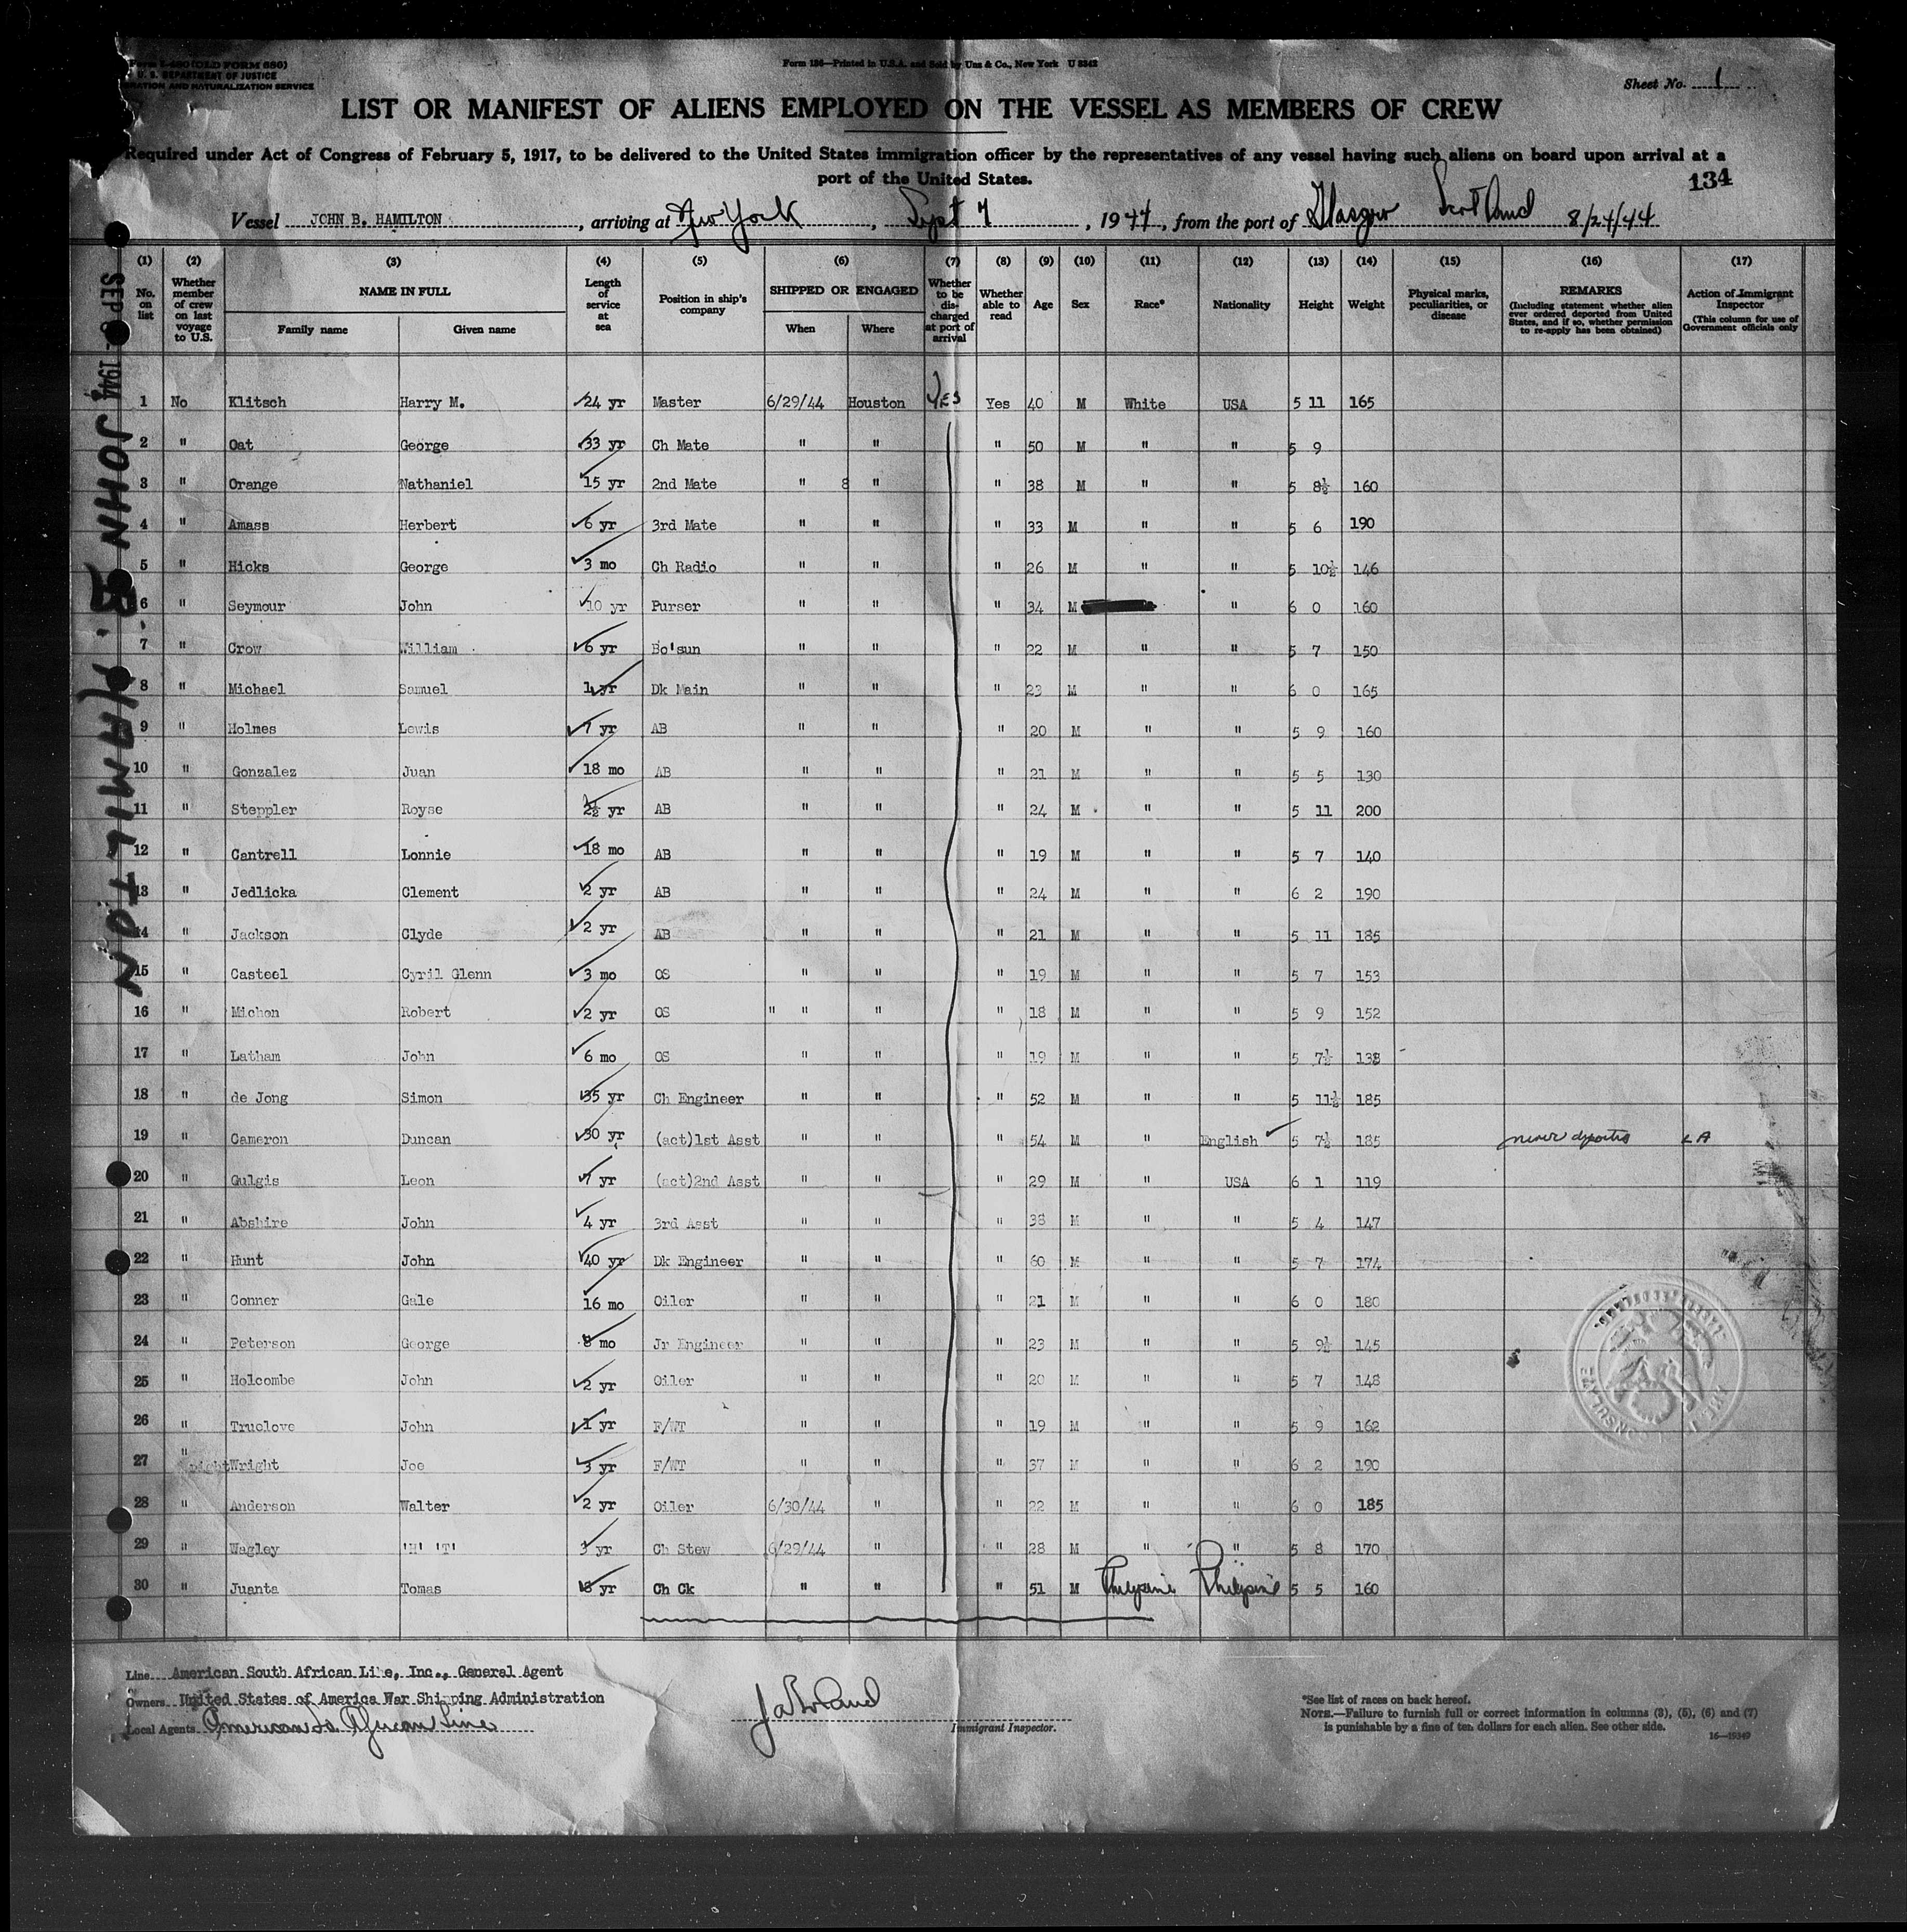 Form I-480 (OLD FORM 680)
U. S. DEPARTMENT OF JUSTICE
IMMIGRATION AND NATURALIZATION SERVICE
Form 186—Printed in U.S.A. and Sold by Unz & Co., New York U 8342
Sheet No. 1
LIST OR MANIFEST OF ALIENS EMPLOYED ON THE VESSEL AS MEMBERS OF CREW
Required under Act of Congress of February 5, 1917, to be delivered to the United States immigration officer by the representatives of any vessel having such aliens on board upon arrival at a
port of the United States.
134
Vessel JOHN B. HAMILTON, arriving at New York, Sept 7, 1944, from the port of Glasgow Scotland 8/24/44
(1) (2) (3) (4) (5) (6) (7) (8) (9) (10) (11) (12) (13) (14) (15) (16) (17)
No. on list
Whether member of crew on last voyage to U.S.
NAME IN FULL
Family name
Given name
Length of service at sea
Position in ship's company
SHIPPED OR ENGAGED
When
Where
Whether to be discharged at port of arrival
Whether able to read
Age
Sex
Race*
Nationality
Height
Weight
Physical marks, peculiarities, or disease
REMARKS
(Including statement whether alien ever ordered deported from United States, and if so, whether permission to re-apply has been obtained)
Action of Immigrant Inspector
(This column for use of Government officials only
1 No Klitsch Harry M. 24 yr Master 6/29/44 Houston Yes Yes 40 M White USA 5 11 165
2 " Oat George 33 yr Ch Mate " " " 50 M " " 5 9
3 " Orange Nathaniel 15 yr 2nd Mate " 8 " " 38 M " " 5 8½ 160
4 " Amass Herbert 6 yr 3rd Mate " " " 33 M " " 5 6 190
5 " Hicks George 3 mo Ch Radio " " " 26 M " " 5 10½ 146
6 " Seymour John 10 yr Purser " " " 34 M " 6 0 160
7 " Crow William 6 yr Bo'sun " " " 22 M " " 5 7 150
8 " Michael Samuel 1 yr Dk Main " " " 23 M " " 6 0 165
9 " Holmes Lewis 7 yr AB " " " 20 M " " 5 9 160
10 " Gonzalez Juan 18 mo AB " " " 21 M " " 5 5 130
11 " Steppler Royse 2½ yr AB " " " 24 M " " 5 11 200
12 " Cantrell Lonnie 18 mo AB " " " 19 M " " 5 7 140
13 " Jedlicka Clement 2 yr AB " " " 24 M " " 6 2 190
14 " Jackson Clyde 2 yr AB " " " 21 M " " 5 11 185
15 " Casteel Cyril Glenn 3 mo OS " " " 19 M " " 5 7 153
16 " Michon Robert 2 yr OS " " " " 18 M " " 5 9 152
17 " Latham John 6 mo OS " " " 19 M " " 5 7½ 138
18 " de Jong Simon 35 yr Ch Engineer " " " 52 M " " 5 11½ 185
19 " Cameron Duncan 30 yr (act)1st Asst " " " 54 M " English 5 7½ 185 never deported LA
20 " Gulgis Leon 7 yr (act)2nd Asst " " " 29 M " USA 6 1 119
21 " Abshire John 4 yr 3rd Asst " " " 38 M " " 5 4 147
22 " Hunt John 40 yr Dk Engineer " " " 60 M " " 5 7 174
23 " Conner Gale 16 mo Oiler " " " 21 M " " 6 0 180
24 " Peterson George 8 mo Jr Engineer " " " 23 M " " 5 9½ 145
25 " Holcombe John 2 yr Oiler " " " 20 M " " 5 7 148
26 " Truelove John 1 yr F/WT " " " 19 M " " 5 9 162
27 " Wright Joe 3 yr F/WT " " " 37 M " " 6 2 190
28 " Anderson Walter 2 yr Oiler 6/30/44 " " 22 M " " 6 0 185
29 " Wagley 'H' 'T' 3 yr Ch Stew 6/29/44 " " 28 M " " 5 8 170
30 " Juanta Tomas 18 yr Ch Ck " " " 51 M Philipsine Philipsine 5 5 160
SEP 8 - 1944 JOHN B. HAMILTON
Line American South African Line, Inc., General Agent
Owners United States of America War Shipping Administration
Local Agents American So. African Line
Immigrant Inspector.
*See list of races on back hereof.
NOTE.—Failure to furnish full or correct information in columns (3), (5), (6) and (7)
is punishable by a fine of ten dollars for each alien. See other side.
16—19349